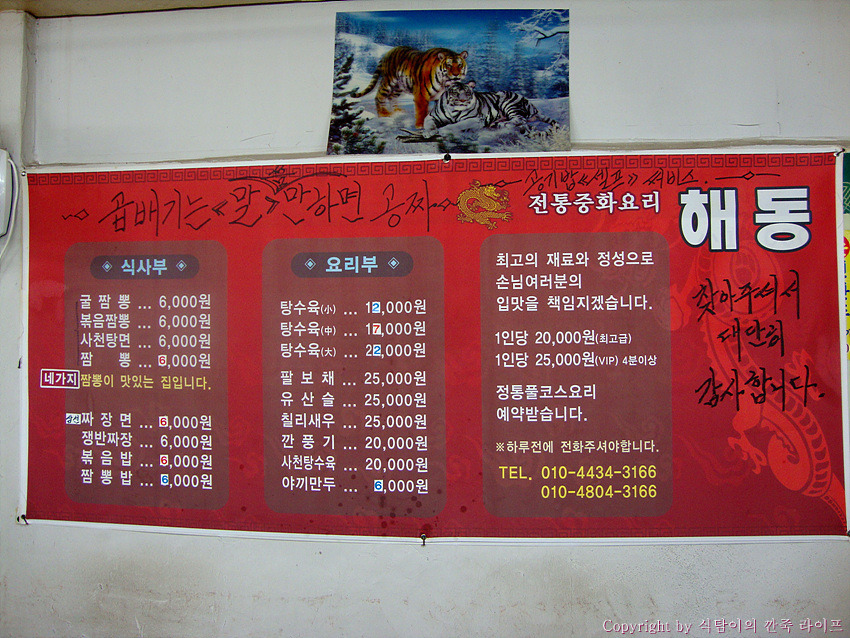 곱배기는 《말》만하면 공짜
공기밥《셀프》써비스.
전통중화요리
해동
찾아주셔서
대단히
감사합니다.
◈ 식사부 ◈
굴 짬 뽕 ... 6,000원
볶음짬뽕 ... 6,000원
사천탕면 ... 6,000원
짬 뽕 ... 6,000원
네가지 짬뽕이 맛있는 집입니다.
삼선 짜 장 면 ... 6,000원
쟁반짜장 ... 6,000원
볶 음 밥 ... 6,000원
짬 뽕 밥 ... 6,000원
◈ 요리부 ◈
탕수육(小) ... 12,000원
탕수육(中) ... 17,000원
탕수육(大) ... 22,000원
팔 보 채 ... 25,000원
유 산 슬 ... 25,000원
칠리새우 ... 25,000원
깐 풍 기 ... 20,000원
사천탕수육 ... 20,000원
야끼만두 ... 6,000원
최고의 재료와 정성으로
손님여러분의
입맛을 책임지겠습니다.
1인당 20,000원(최고급)
1인당 25,000원(VIP) 4분이상
정통풀코스요리
예약받습니다.
※하루전에 전화주셔야합니다.
TEL. 010-4434-3166
010-4804-3166
Copyright by 식탐이의 깐죽 라이프